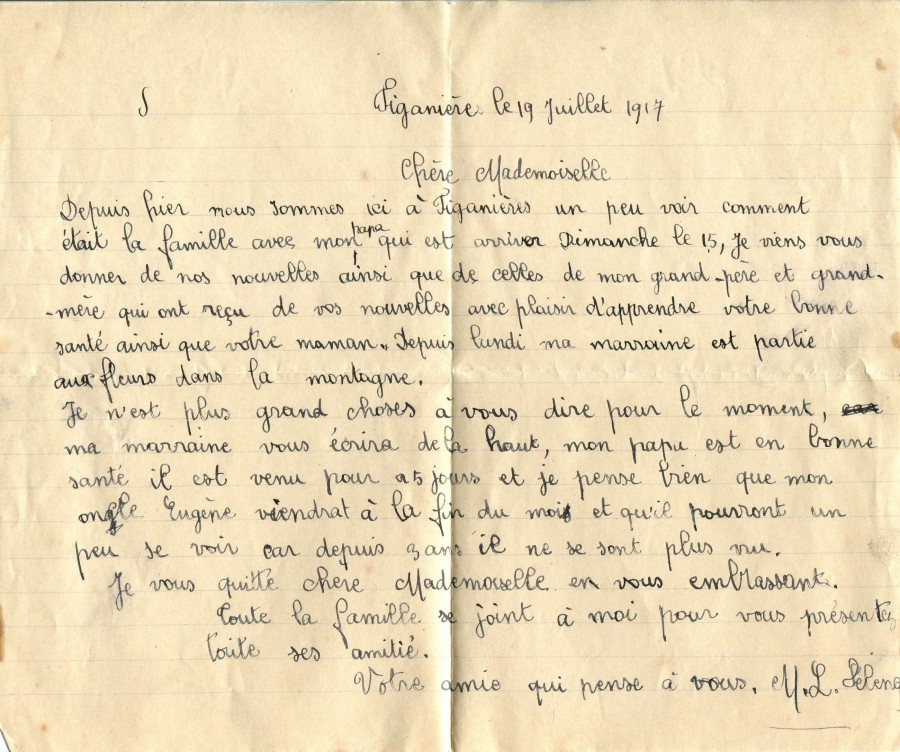 Figanière le 19 Juillet 1917
Chère Mademoiselle
Depuis hier nous sommes ici à Figanières un peu voir comment
était la famille avec mon papa qui est arriver Dimanche le 15, Je viens vous
donner de nos nouvelles ainsi que de celles de mon grand-père et grand-
-mère qui ont reçu de vos nouvelles avec plaisir d'apprendre votre bonne
santé ainsi que votre maman. Depuis lundi ma marraine est partie
aux fleurs dans la montagne.
Je n'est plus grand choses à vous dire pour le moment,
ma marraine vous écrira de la haut, mon papa est en bonne
santé il est venu pour 25 jours et je pense bien que mon
oncle Eugène viendrat à la fin du mois et qu'il pourront un
peu se voir car depuis 3 ans il ne se sont plus vu.
Je vous quitte chère Mademoiselle en vous embrassant.
Toute la famille se joint à moi pour vous présentez
toute ses amitié.
Votre amie qui pense à vous. M.L.